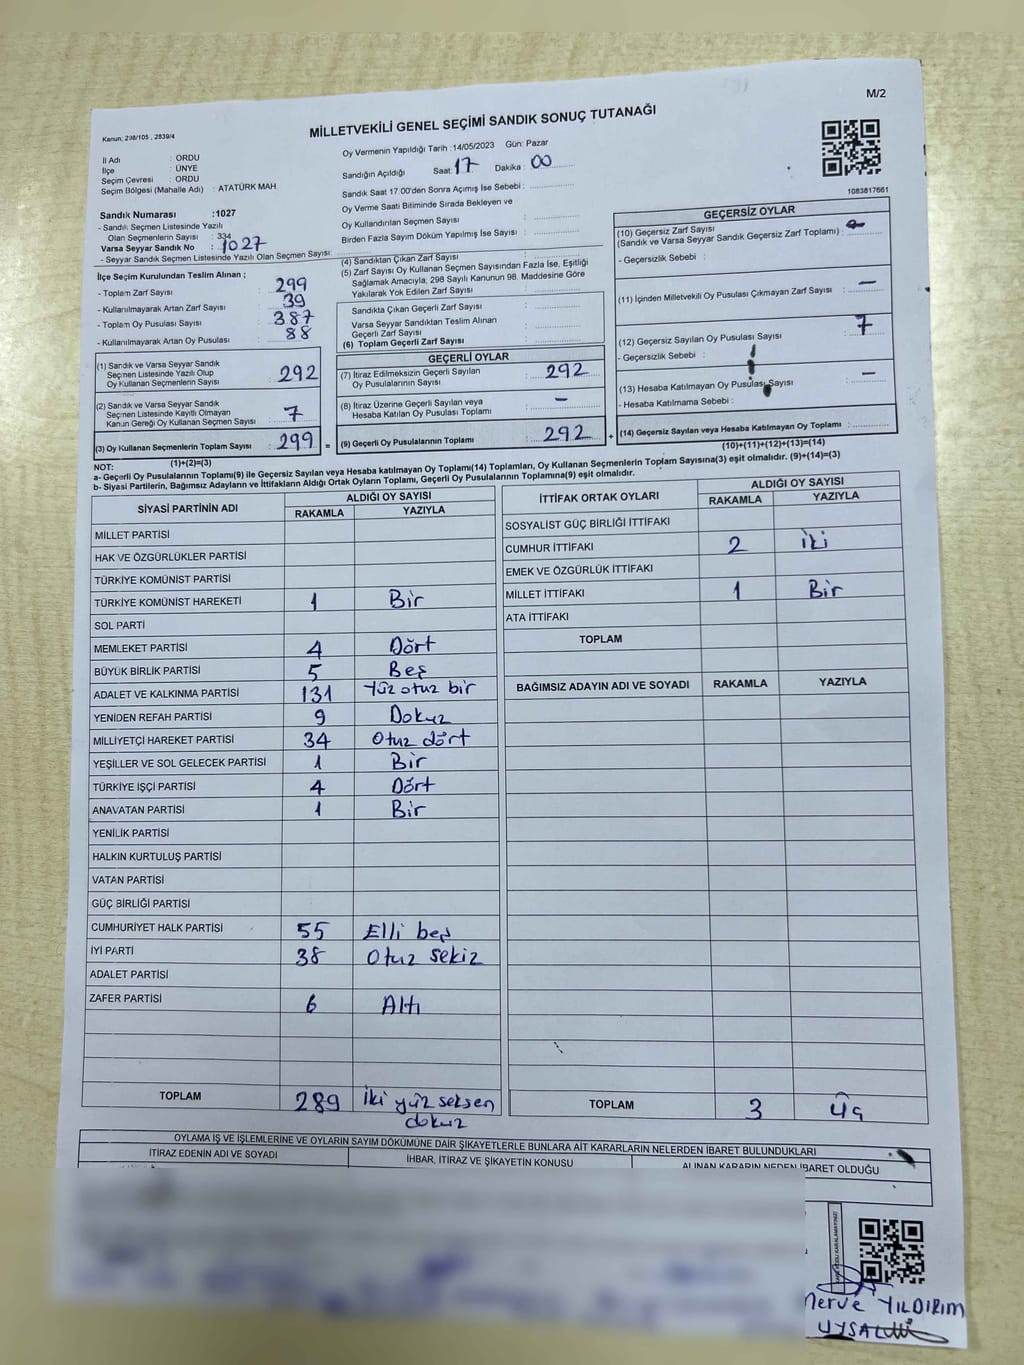 M/2
Kanun; 298/105 , 2839/4
MİLLETVEKİLİ GENEL SEÇİMİ SANDIK SONUÇ TUTANAĞI
İl Adı : ORDU
İlçe : ÜNYE
Seçim Çevresi : ORDU
Seçim Bölgesi (Mahalle Adı) : ATATÜRK MAH.
Sandık Numarası :1027
- Sandık Seçmen Listesinde Yazılı
Olan Seçmenlerin Sayısı : 334
Varsa Seyyar Sandık No : 1027
- Seyyar Sandık Seçmen Listesinde Yazılı Olan Seçmen Sayısı:
Oy Vermenin Yapıldığı Tarih :14/05/2023 Gün: Pazar
Sandığın Açıldığı Saat: 17 Dakika : 00
Sandık Saat 17:00'den Sonra Açımış İse Sebebi :
Oy Verme Saati Bitiminde Sırada Bekleyen ve
Oy Kullandırılan Seçmen Sayısı :
Birden Fazla Sayım Döküm Yapılmış İse Sayısı :
1083817661
İlçe Seçim Kurulundan Teslim Alınan ;
- Toplam Zarf Sayısı : 299
- Kullanılmayarak Artan Zarf Sayısı : 39
- Toplam Oy Pusulası Sayısı : 387
- Kullanılmayarak Artan Oy Pusulası : 88
(1) Sandık ve Varsa Seyyar Sandık
Seçmen Listesinde Yazılı Olup
Oy Kullanan Seçmenlerin Sayısı : 292
(2) Sandık ve Varsa Seyyar Sandık
Seçmen Listesinde Kayıtlı Olmayan
Kanun Gereği Oy Kullanan Seçmen Sayısı : 7
(3) Oy Kullanan Seçmenlerin Toplam Sayısı : 299 =
(1)+(2)=(3)
(4) Sandıktan Çıkan Zarf Sayısı :
(5) Zarf Sayısı Oy Kullanan Seçmen Sayısından Fazla İse, Eşitliği
Sağlamak Amacıyla; 298 Sayılı Kanunun 98. Maddesine Göre
Yakılarak Yok Edilen Zarf Sayısı :
Sandıkta Çıkan Geçerli Zarf Sayısı :
Varsa Seyyar Sandıktan Teslim Alınan
Geçerli Zarf Sayısı :
(6) Toplam Geçerli Zarf Sayısı :
GEÇERLİ OYLAR
(7) İtiraz Edilmeksizin Geçerli Sayılan
Oy Pusulalarının Sayısı : 292
(8) İtiraz Üzerine Geçerli Sayılan veya
Hesaba Katılan Oy Pusulası Toplamı : -
(9) Geçerli Oy Pusulalarının Toplamı : 292 +
GEÇERSİZ OYLAR
(10) Geçersiz Zarf Sayısı
(Sandık ve Varsa Seyyar Sandık Geçersiz Zarf Toplamı) :
- Geçersizlik Sebebi :
(11) İçinden Milletvekili Oy Pusulası Çıkmayan Zarf Sayısı : -
(12) Geçersiz Sayılan Oy Pusulası Sayısı : 7
- Geçersizlik Sebebi :
(13) Hesaba Katılmayan Oy Pusulası Sayısı : -
- Hesaba Katılmama Sebebi :
(14) Geçersiz Sayılan veya Hesaba Katılmayan Oy Toplamı :
(10)+(11)+(12)+(13)=(14)
NOT:
a- Geçerli Oy Pusulalarının Toplamı(9) ile Geçersiz Sayılan veya Hesaba katılmayan Oy Toplamı(14) Toplamları, Oy Kullanan Seçmenlerin Toplam Sayısına(3) eşit olmalıdır. (9)+(14)=(3)
b- Siyasi Partilerin, Bağımsız Adayların ve İttifakların Aldığı Ortak Oyların Toplamı, Geçerli Oy Pusulalarının Toplamına(9) eşit olmalıdır.
SİYASİ PARTİNİN ADI
ALDIĞI OY SAYISI
RAKAMLA YAZIYLA
MİLLET PARTİSİ
HAK VE ÖZGÜRLÜKLER PARTİSİ
TÜRKİYE KOMÜNİST PARTİSİ
TÜRKİYE KOMÜNİST HAREKETİ 1 Bir
SOL PARTİ
MEMLEKET PARTİSİ 4 Dört
BÜYÜK BİRLİK PARTİSİ 5 Beş
ADALET VE KALKINMA PARTİSİ 131 Yüz otuz bir
YENİDEN REFAH PARTİSİ 9 Dokuz
MİLLİYETÇİ HAREKET PARTİSİ 34 Otuz dört
YEŞİLLER VE SOL GELECEK PARTİSİ 1 Bir
TÜRKİYE İŞÇİ PARTİSİ 4 Dört
ANAVATAN PARTİSİ 1 Bir
YENİLİK PARTİSİ
HALKIN KURTULUŞ PARTİSİ
VATAN PARTİSİ
GÜÇ BİRLİĞİ PARTİSİ
CUMHURİYET HALK PARTİSİ 55 Elli beş
İYİ PARTİ 38 Otuz sekiz
ADALET PARTİSİ
ZAFER PARTİSİ 6 Altı
TOPLAM 289 İki yüz seksen
dokuz
İTTİFAK ORTAK OYLARI
ALDIĞI OY SAYISI
RAKAMLA YAZIYLA
SOSYALİST GÜÇ BİRLİĞİ İTTİFAKI
CUMHUR İTTİFAKI 2 iki
EMEK VE ÖZGÜRLÜK İTTİFAKI
MİLLET İTTİFAKI 1 Bir
ATA İTTİFAKI
TOPLAM
BAĞIMSIZ ADAYIN ADI VE SOYADI RAKAMLA YAZIYLA
TOPLAM 3 Üç
OYLAMA İŞ VE İŞLEMLERİNE VE OYLARIN SAYIM DÖKÜMÜNE DAİR ŞİKAYETLERLE BUNLARA AİT KARARLARIN NELERDEN İBARET BULUNDUKLARI
İTİRAZ EDENİN ADI VE SOYADI İHBAR, İTİRAZ VE ŞİKAYETİN KONUSU ALINAN KARARIN NEDEN İBARET OLDUĞU
Merve YILDIRIM
UYSAL